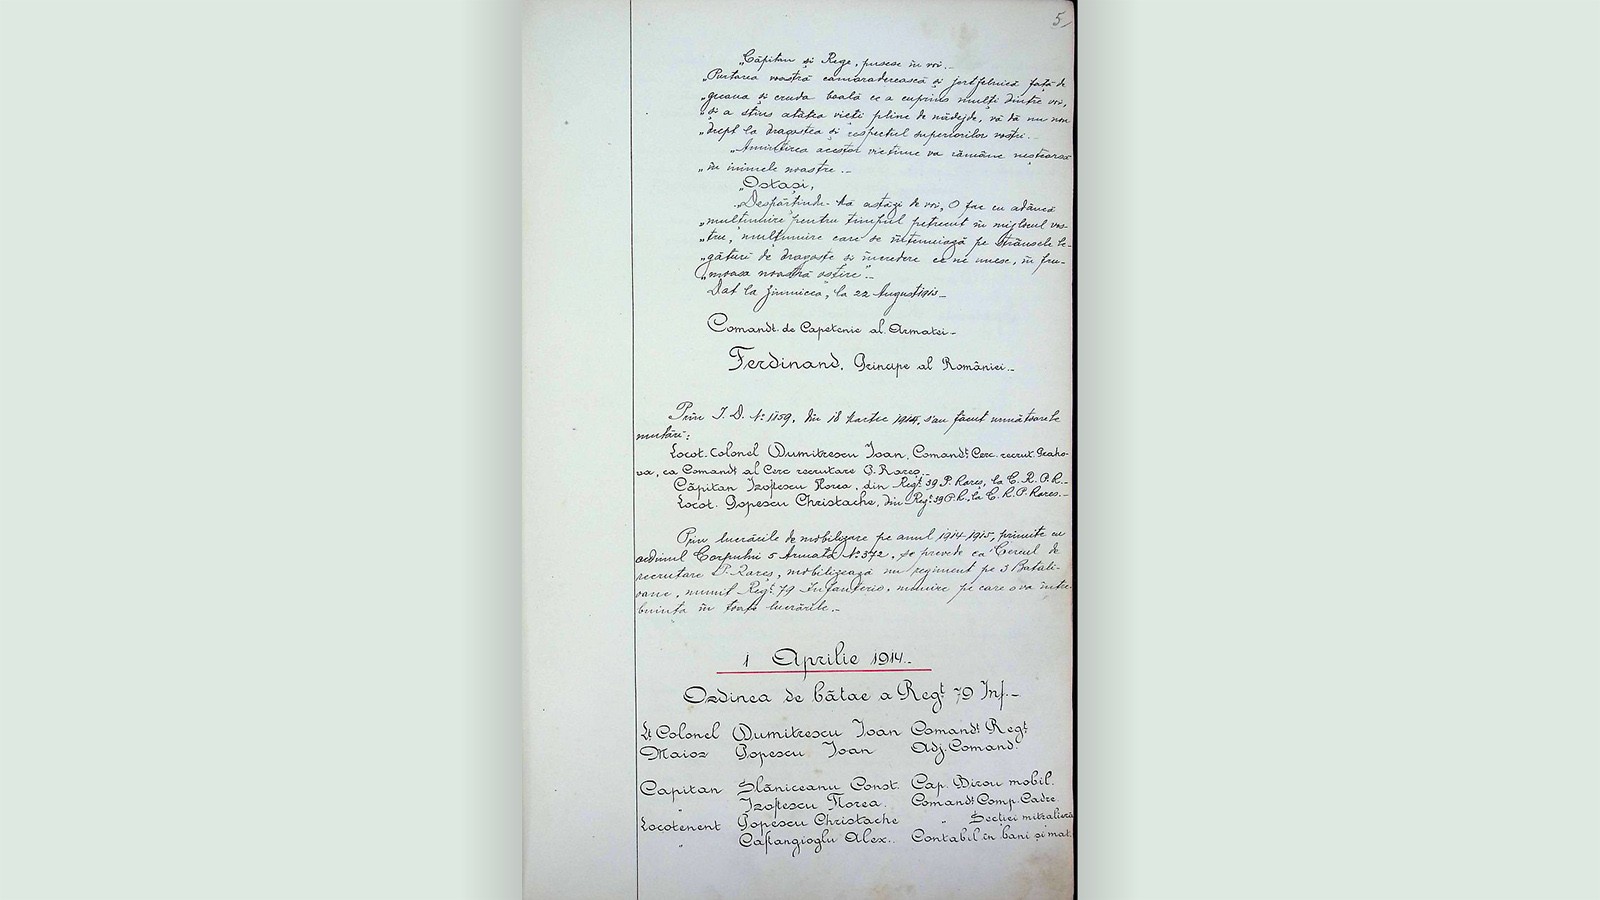 5
„Căpitan și Rege, pusese în voi._
„Purtarea voastră camaraderească și jertfelnică față de
„greaua și cruda boală ce a cuprins mulți dintre voi,
„și a stins atâtea vieți pline de nădejde, vă dă nu nou
„drept la dragostea și respectul superiorilor voștri._
„Amintirea acestor victime va rămâne neștearsă
„în inimele noastre._
„Ostași,
„Despărțindu-Mă astăzi de voi, O fac cu adâncă
„mulțumire pentru timpul petrecut în mijlocul vos-
„tru, mulțumire care se întemeiază pe strânsele le-
„gături de dragoste și încredere ce ne unesc, în fru-
„moasa noastră oștire"._
Dat la Zimnicea, la 22 August 1913_
Comandt. de Capetenie al Armatei_
Ferdinand, Principe al României._
Prin I. D. No 1159, din 18 Martie 1914, s'au făcut următoarele
mutări:
Locot. Colonel Dumitrescu Ioan, Comandt Cerc. recrut. Praho-
va, ca Comandt al Cerc recrutare P. Rareș._
Căpitan Izoptescu Florea, din Regt 39 P. Rareș, la C. R. P. R._
Locot. Popescu Christache, din Regt 39 P. R. la C. R. P. Rareș._
Prin lucrările de mobilizare pe anul 1914-1915, primite cu
ordinul Corpului 5 Armată No 372, se prevede ca Cercul de
recrutare P. Rareș, mobilizează un regiment pe 3 Batali-
oane, numit Regt 79 Infanterie, numire pe care o va între
buința în toate lucrările._
1 Aprilie 1914._
Ordinea de bătae a Regt 79 Inf._
Lt. Colonel Dumitrescu Ioan Comandt Regt
Maior Popescu Ioan Adj. Comand.
Capitan Slăniceanu Const. Cap. Birou mobil.
" Izoptescu Florea. Comandt Comp. Cadre.
Locotenent Popescu Christache " Secției mitralieră
" Caftangioglu Alex.. Contabil în bani și mat.